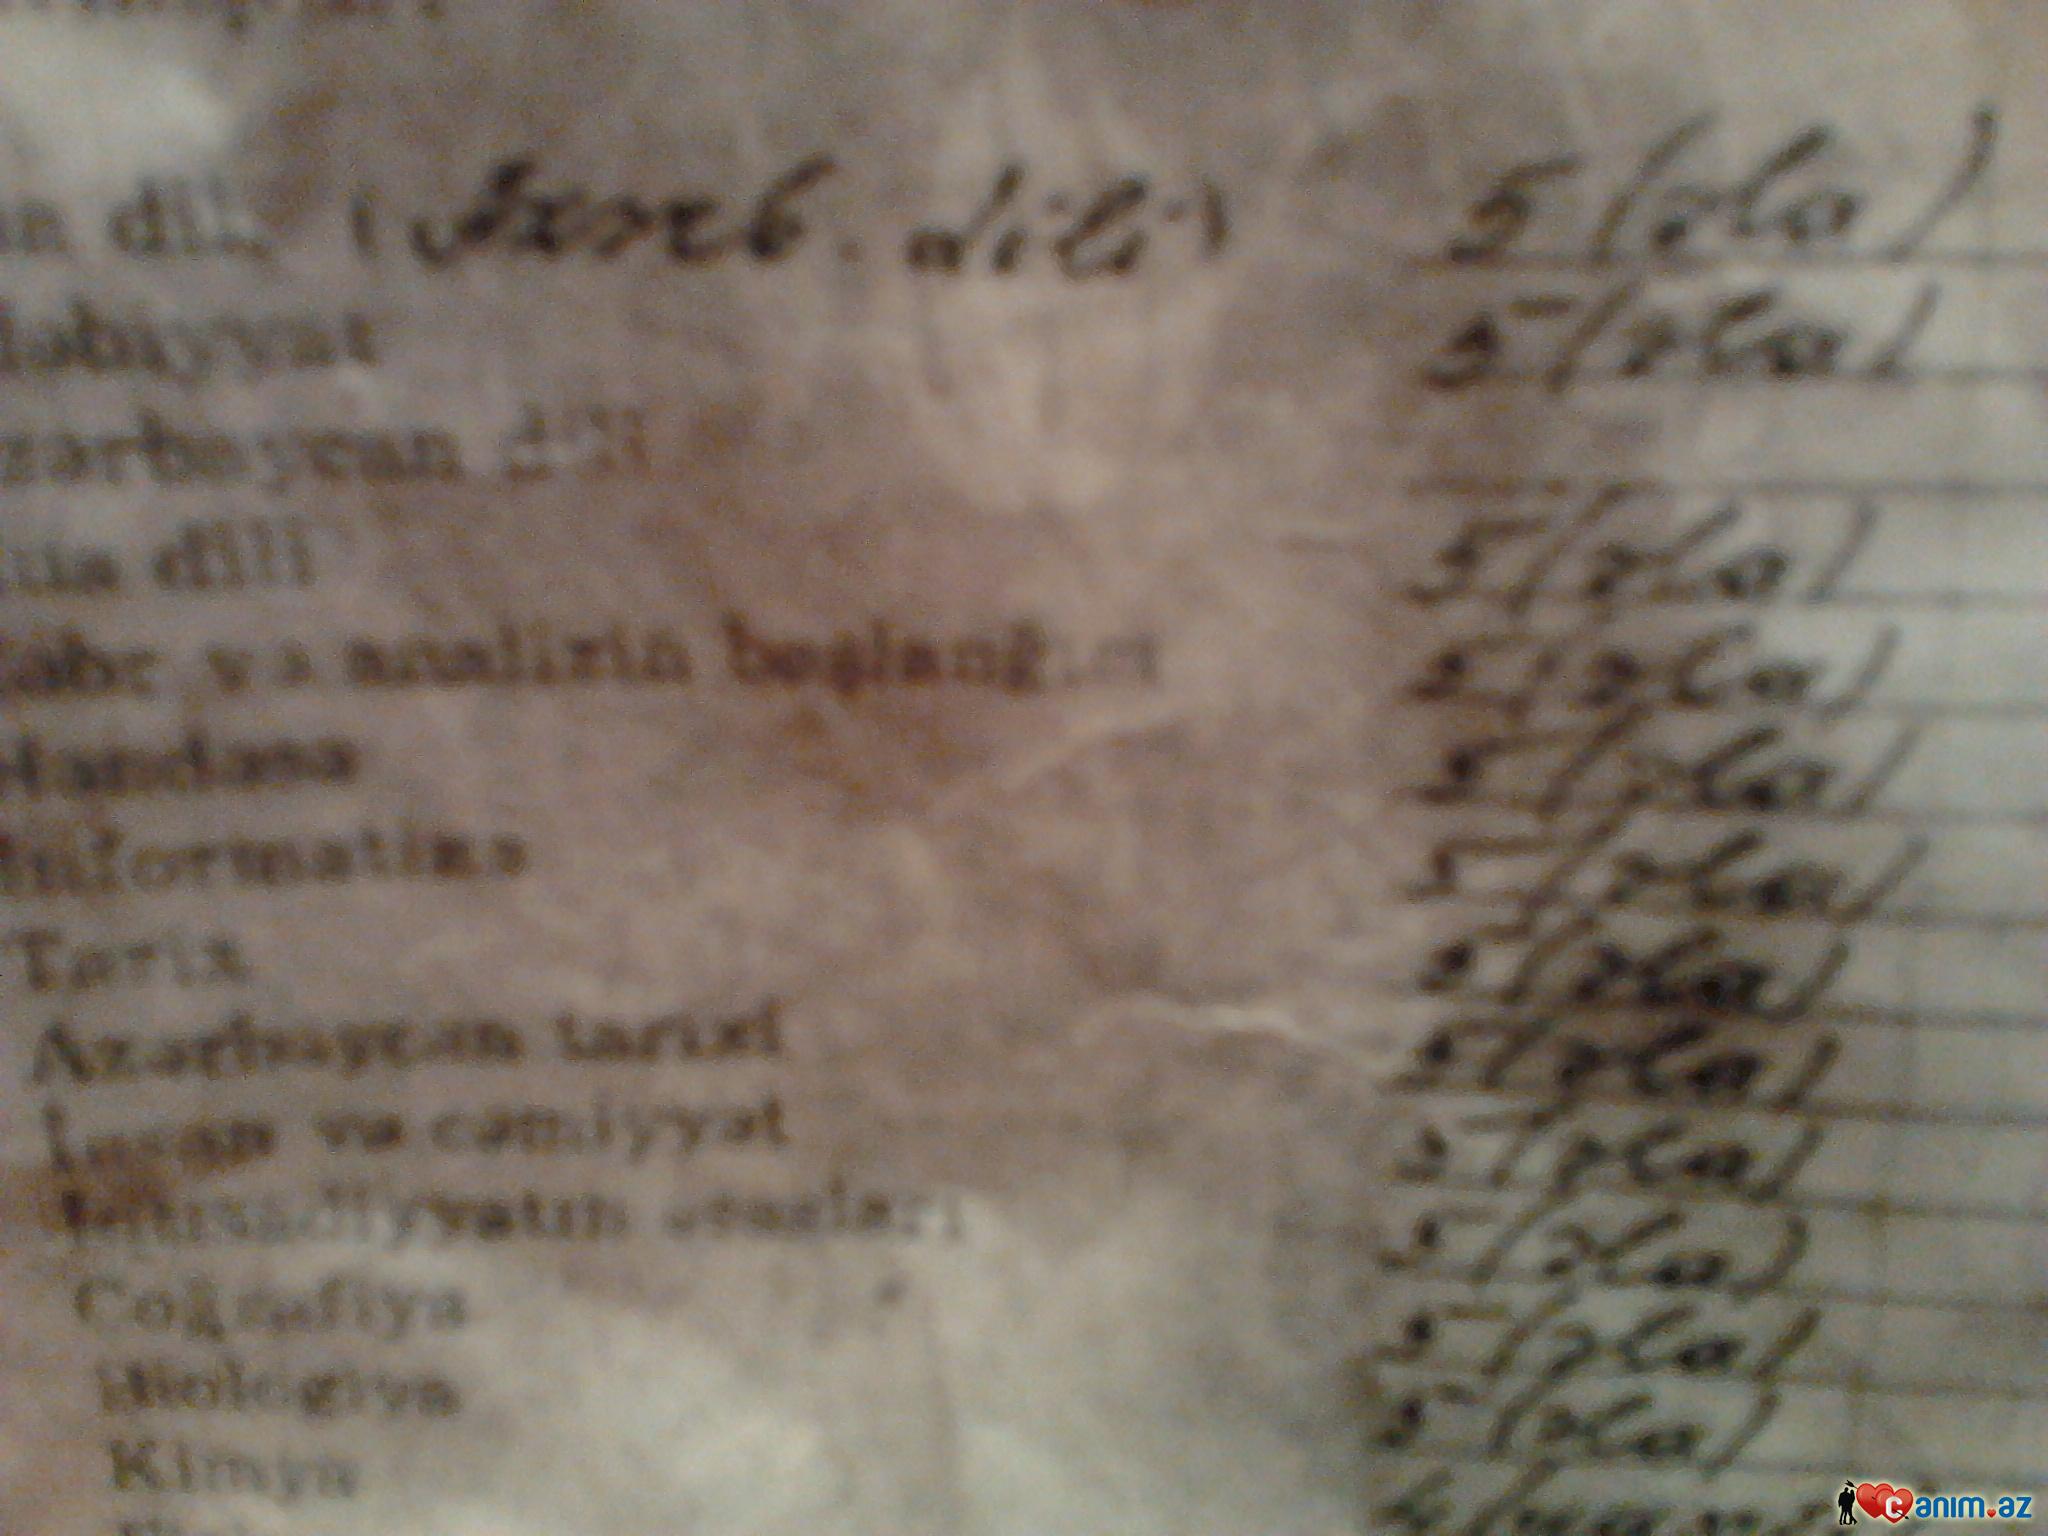 dili (Azərb. dili) 5 (əla)
dəbiyyat 5 (əla)
zərbaycan dili
dili 5 (əla)
və analizin başlanğıcı 5 (əla)
Həndəsə 5 (əla)
İnformatika 5 (əla)
Tarix 5 (əla)
Azərbaycan tarixi 5 (əla)
İnsan və cəmiyyət 5 (əla)
İqtisadiyyatın əsasları 5 (əla)
Coğrafiya 5 (əla)
Biologiya 5 (əla)
Kimya 4
canim.az